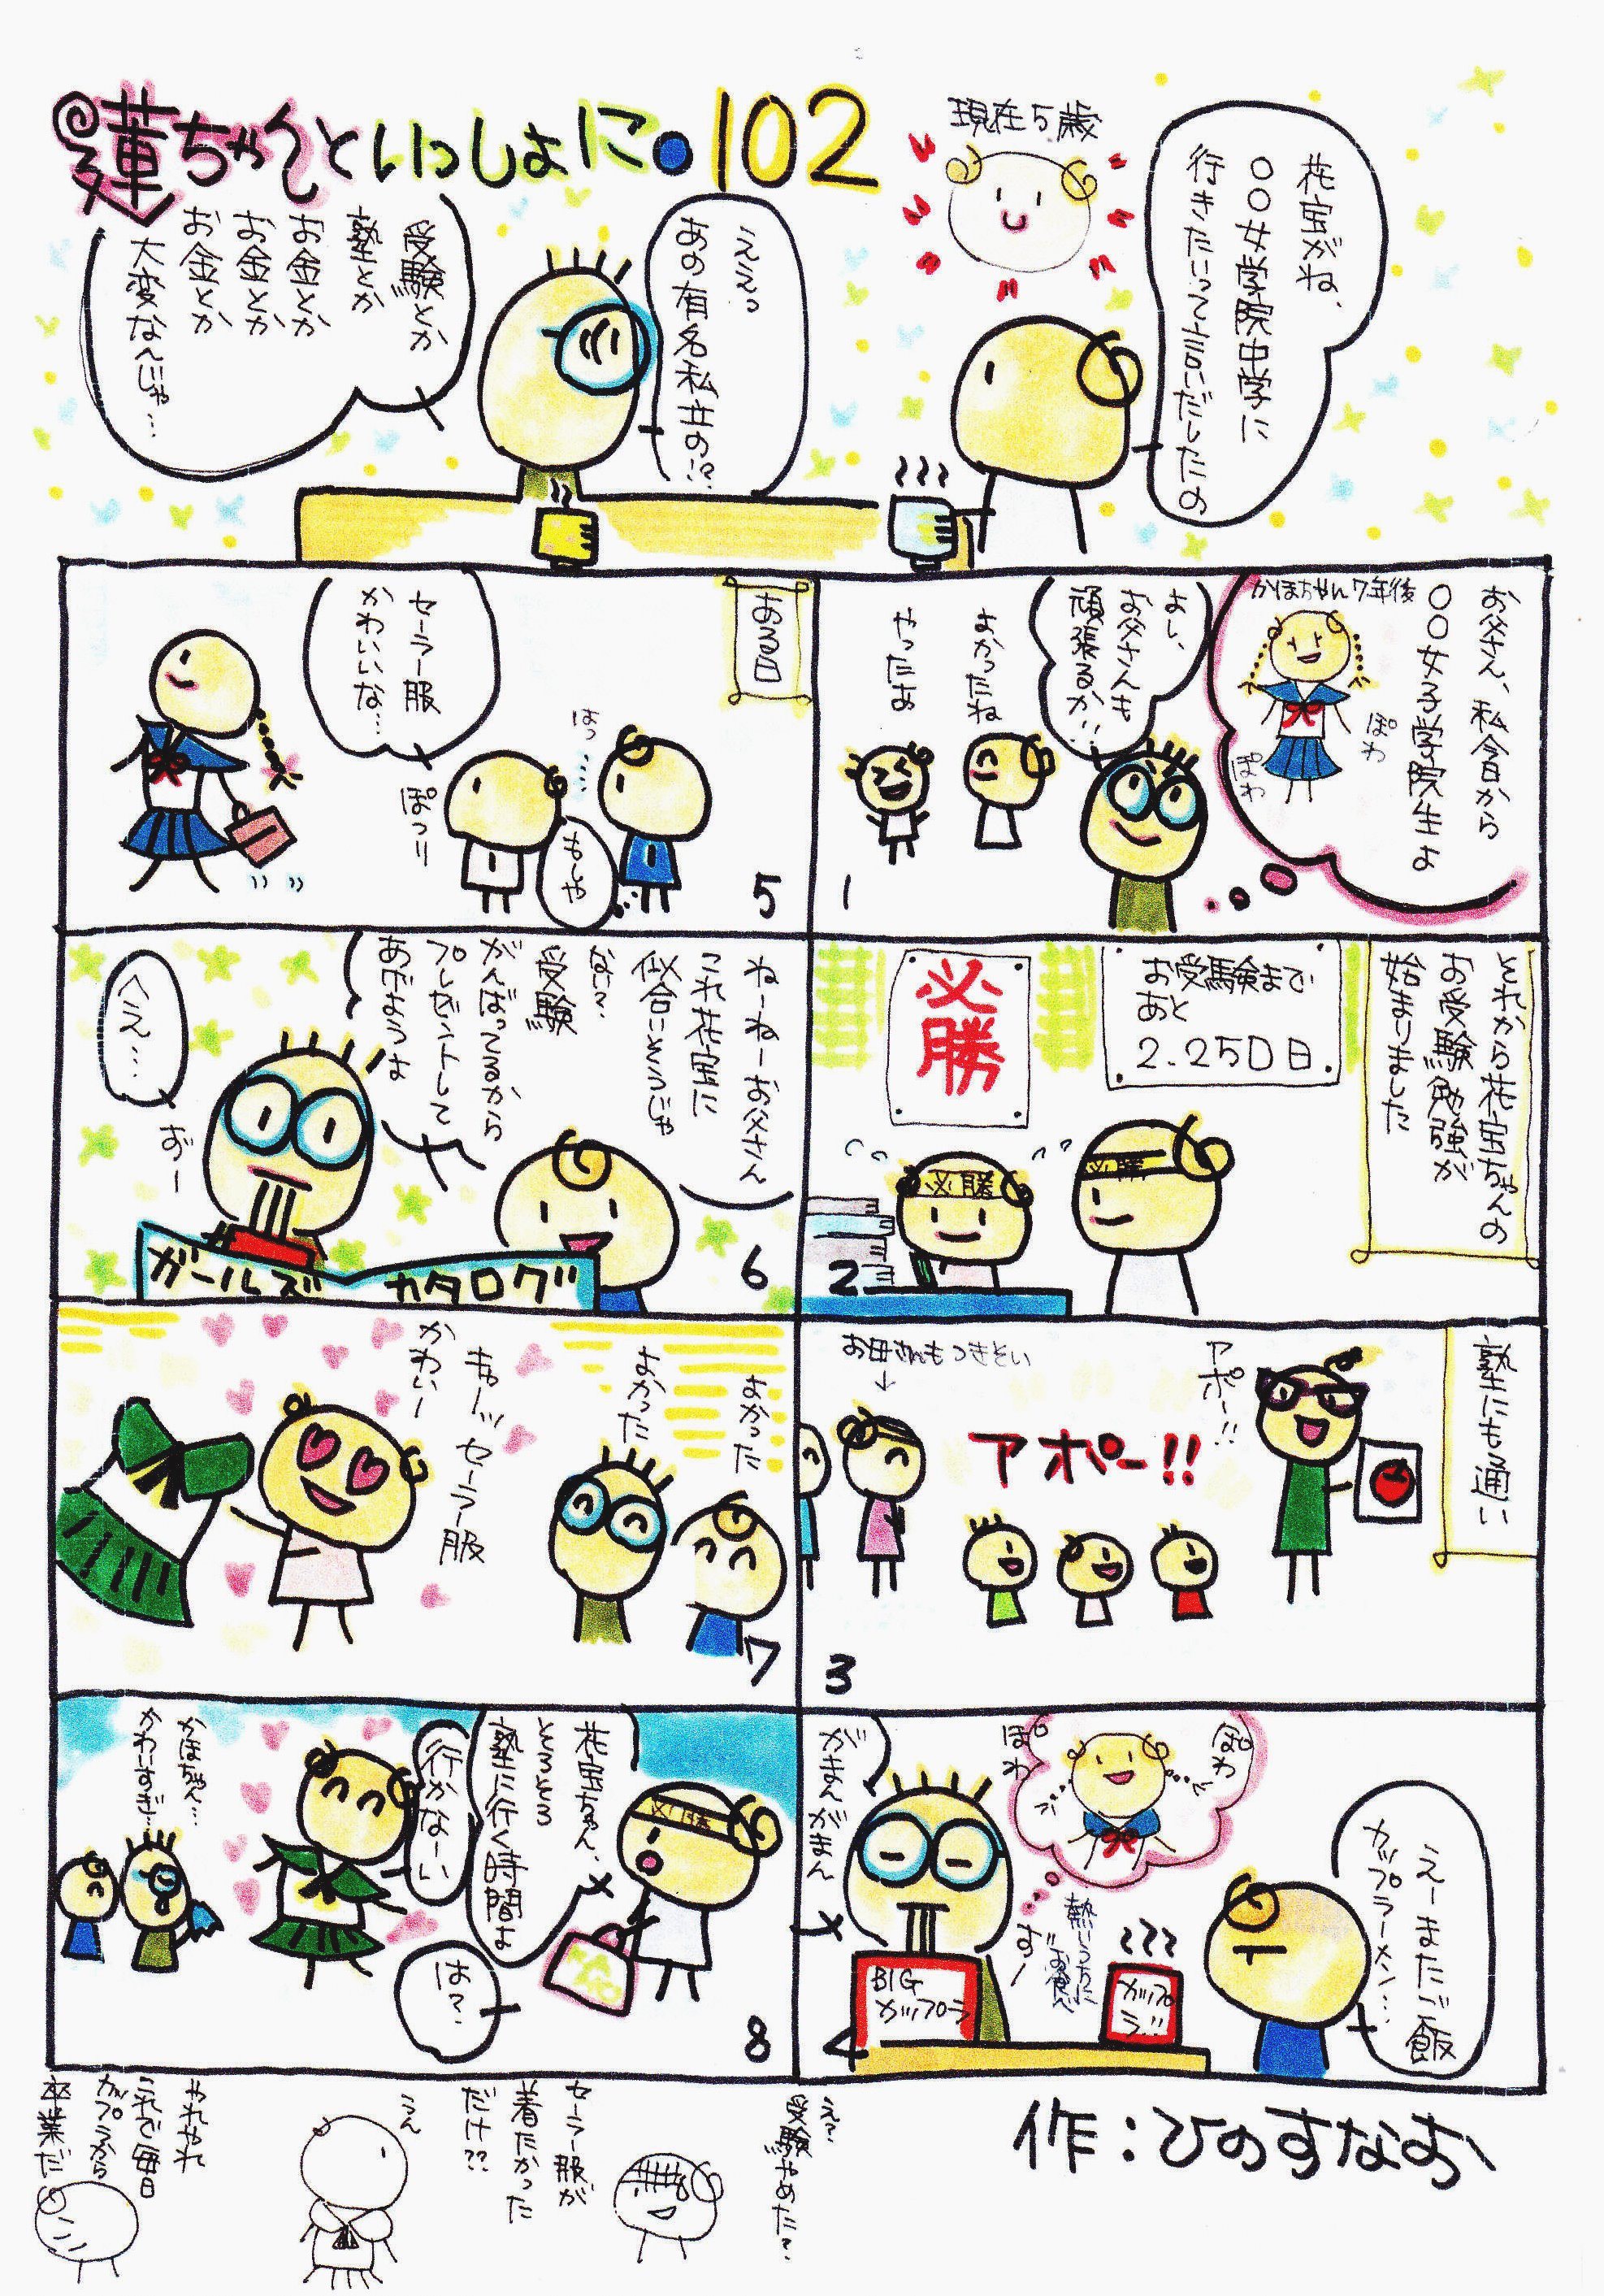 蓮ちゃんといっしょに・102
現在5歳
花宝がね、
〇〇女学院中学に
行きたいって言いだしたの
ええっ
あの有名私立の!?
受験とか
塾とか
お金とか
お金とか
お金とか
大変なんじゃ…
お父さん、私今日から
〇〇女子学院生よ
かほちゃん7年後
ぽわ
ぽわ
よし、
お父さんも
頑張るか!!
よかったね
やったぁ
1
それから花宝ちゃんの
お受験勉強が
始まりました
お受験まで
あと
2.250日
必勝
必勝
必勝
2
塾にも通い
アポー!!
アポー!!
お母さんもつきそい
↓
3
えーまたご飯
カップラーメン…
ぽわ
ぽわ
熱いうちに
お食べ
ずー
がまんがまん
BIG
カップラ
カップ
ラ
4
ある日
はっ
もしや
セーラー服
かわいいな…
ぽっ
5
ねーねーお父さん
これ花宝に
似合いそうじゃ
ない?
受験
がんばってるから
プレゼントして
あげようよ
へえ…
ずー
ガールズ カタログ
6
よかった
よかった
キャーッセーラー服
かわいー
7
花宝ちゃん、
そろそろ
塾に行く時間よ
行かなーい
は?
かほちゃん…
かわいすぎ…
8
作:ひのすなお
え?
受験やめた?
セーラー服が
着たかった
だけ??
うん
やれやれ
これで毎日
カップラから
卒業だ